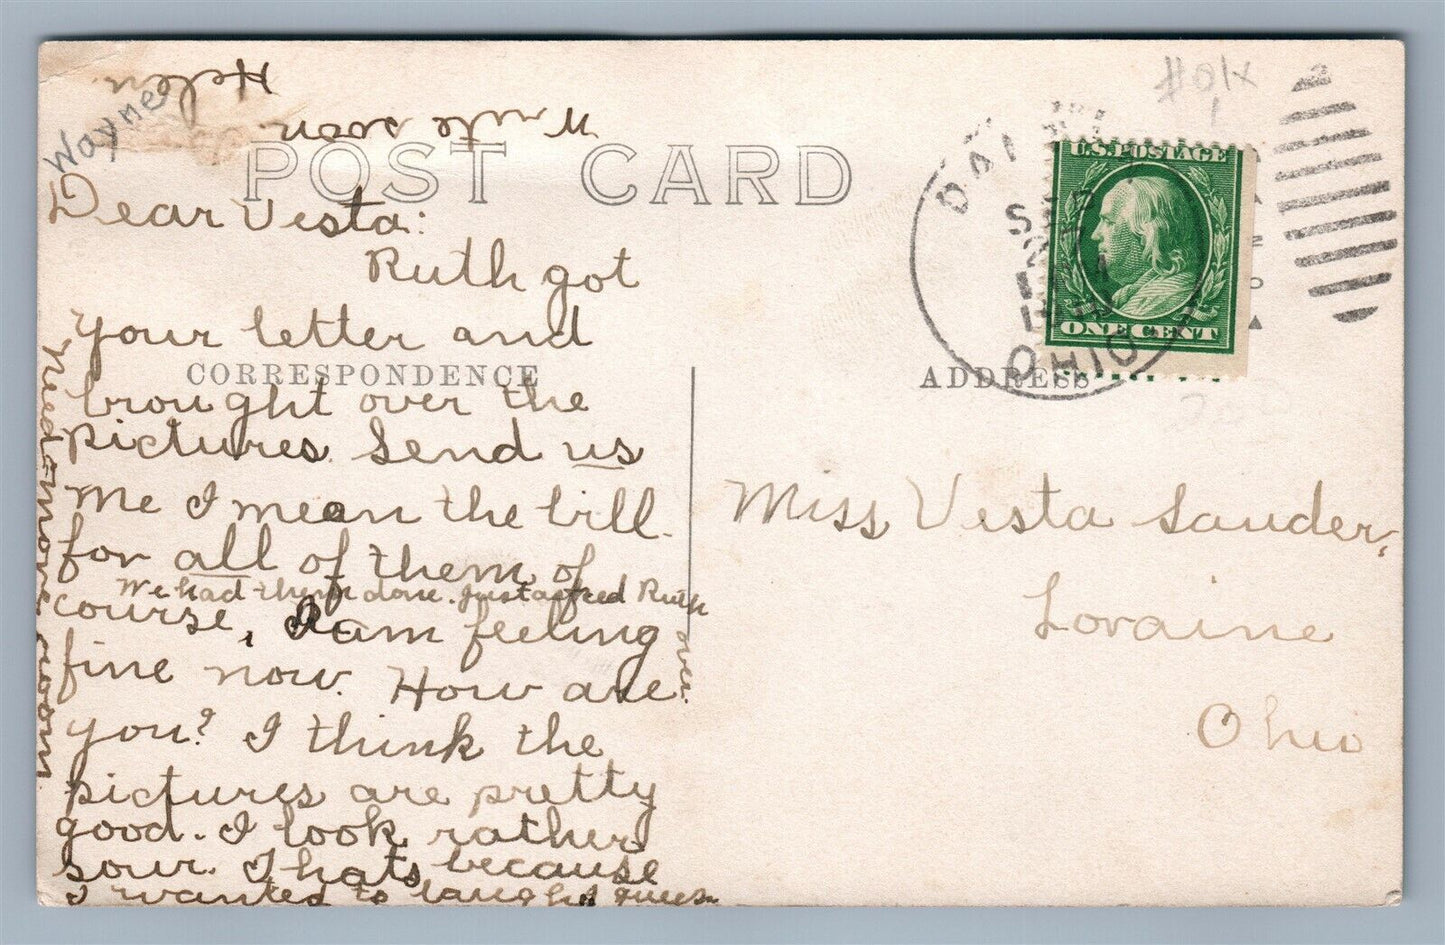 POST CARD
CORRESPONDENCE
ADDRESS
Wayne
Dear Vesta:
Ruth got
your letter and
brought over the
pictures. Send us
me I mean the bill
for all of them of
We had them done. Just asked Ruth
course, I am feeling
fine now. How are
you? I think the
pictures are pretty
good. I look rather
sour. Thats because
I wanted to laugh I guess
over.
Need more room
Write soon.
Helen.
U.S. POSTAGE
ONE CENT
SEP
OHIO
Miss Vesta Sauder,
Loraine
Ohio